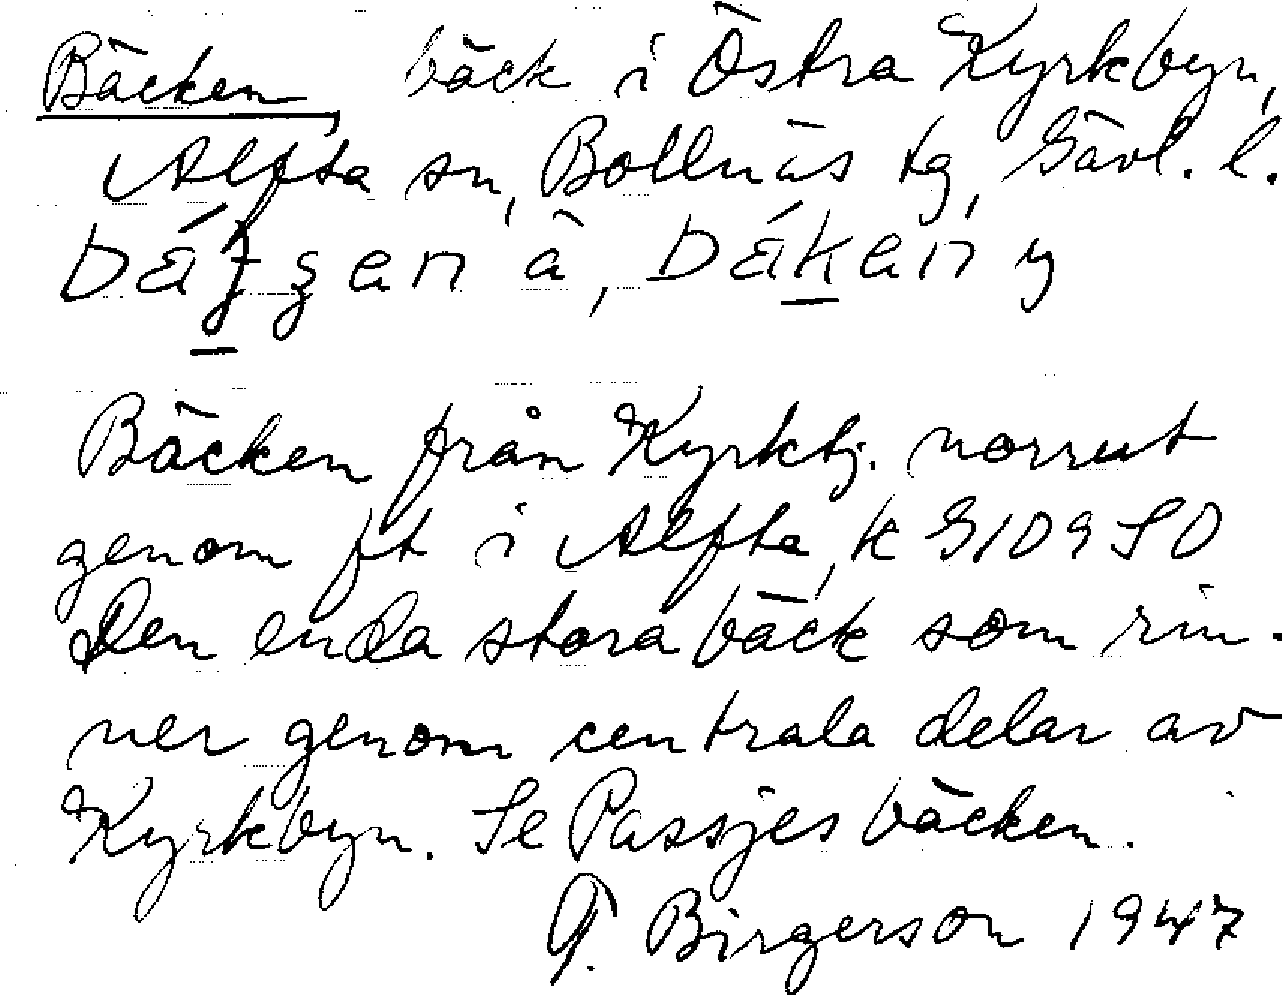 Bäcken, bäck i Östra Kyrkbyn,
Alfta sn, Bollnäs tg, Gävl. l.
ä, y
Bäcken från Kyrktj. norrut
genom ft i Alfta, k G109 SO
Den enda stora bäck som rin-
ner genom centrala delar av
Kyrkbyn. Se Passjesbäcken.
Birgerson 1947